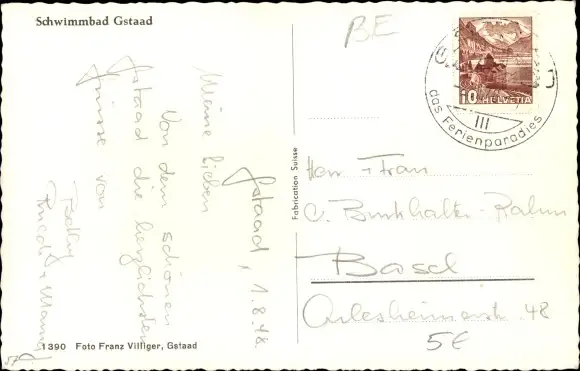 Schwimmbad Gstaad
BE
10 HELVETIA
III
das Ferienparadies
Gstaad, 1.8.48.
Meine Lieben
Von dem schönen
Gstaad die herzlichsten
Grüsse von
Fabrication Suisse
Herrn + Frau
C. Burkhalter-Rahm
Basel
Arlesheimerstr. 48
5€
1390 Foto Franz Villiger, Gstaad